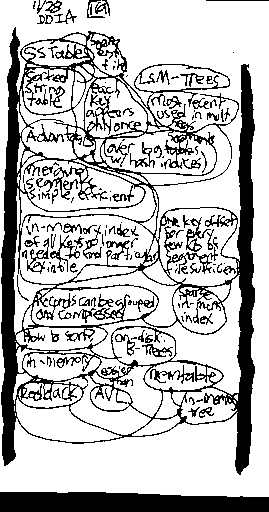 4/28
DDIA
SSTables
Sorted
string
table
each
key
appears
only once
LSM-Trees
most recent
used in mult
segs
Advantages
segments
over log tables
w/ hash indices
merging
segments
simple, efficient
in-memory index
of all keys no longer
needed to find particular
key in file
one key offset
for every
few kb of
segment
file sufficient
Records can be grouped
and compresses
sparse
in-mem
index
How to sort?
on-disk:
B-Trees
in-memory
easier
than
memtable
Redblack
AVL
in-memory
tree